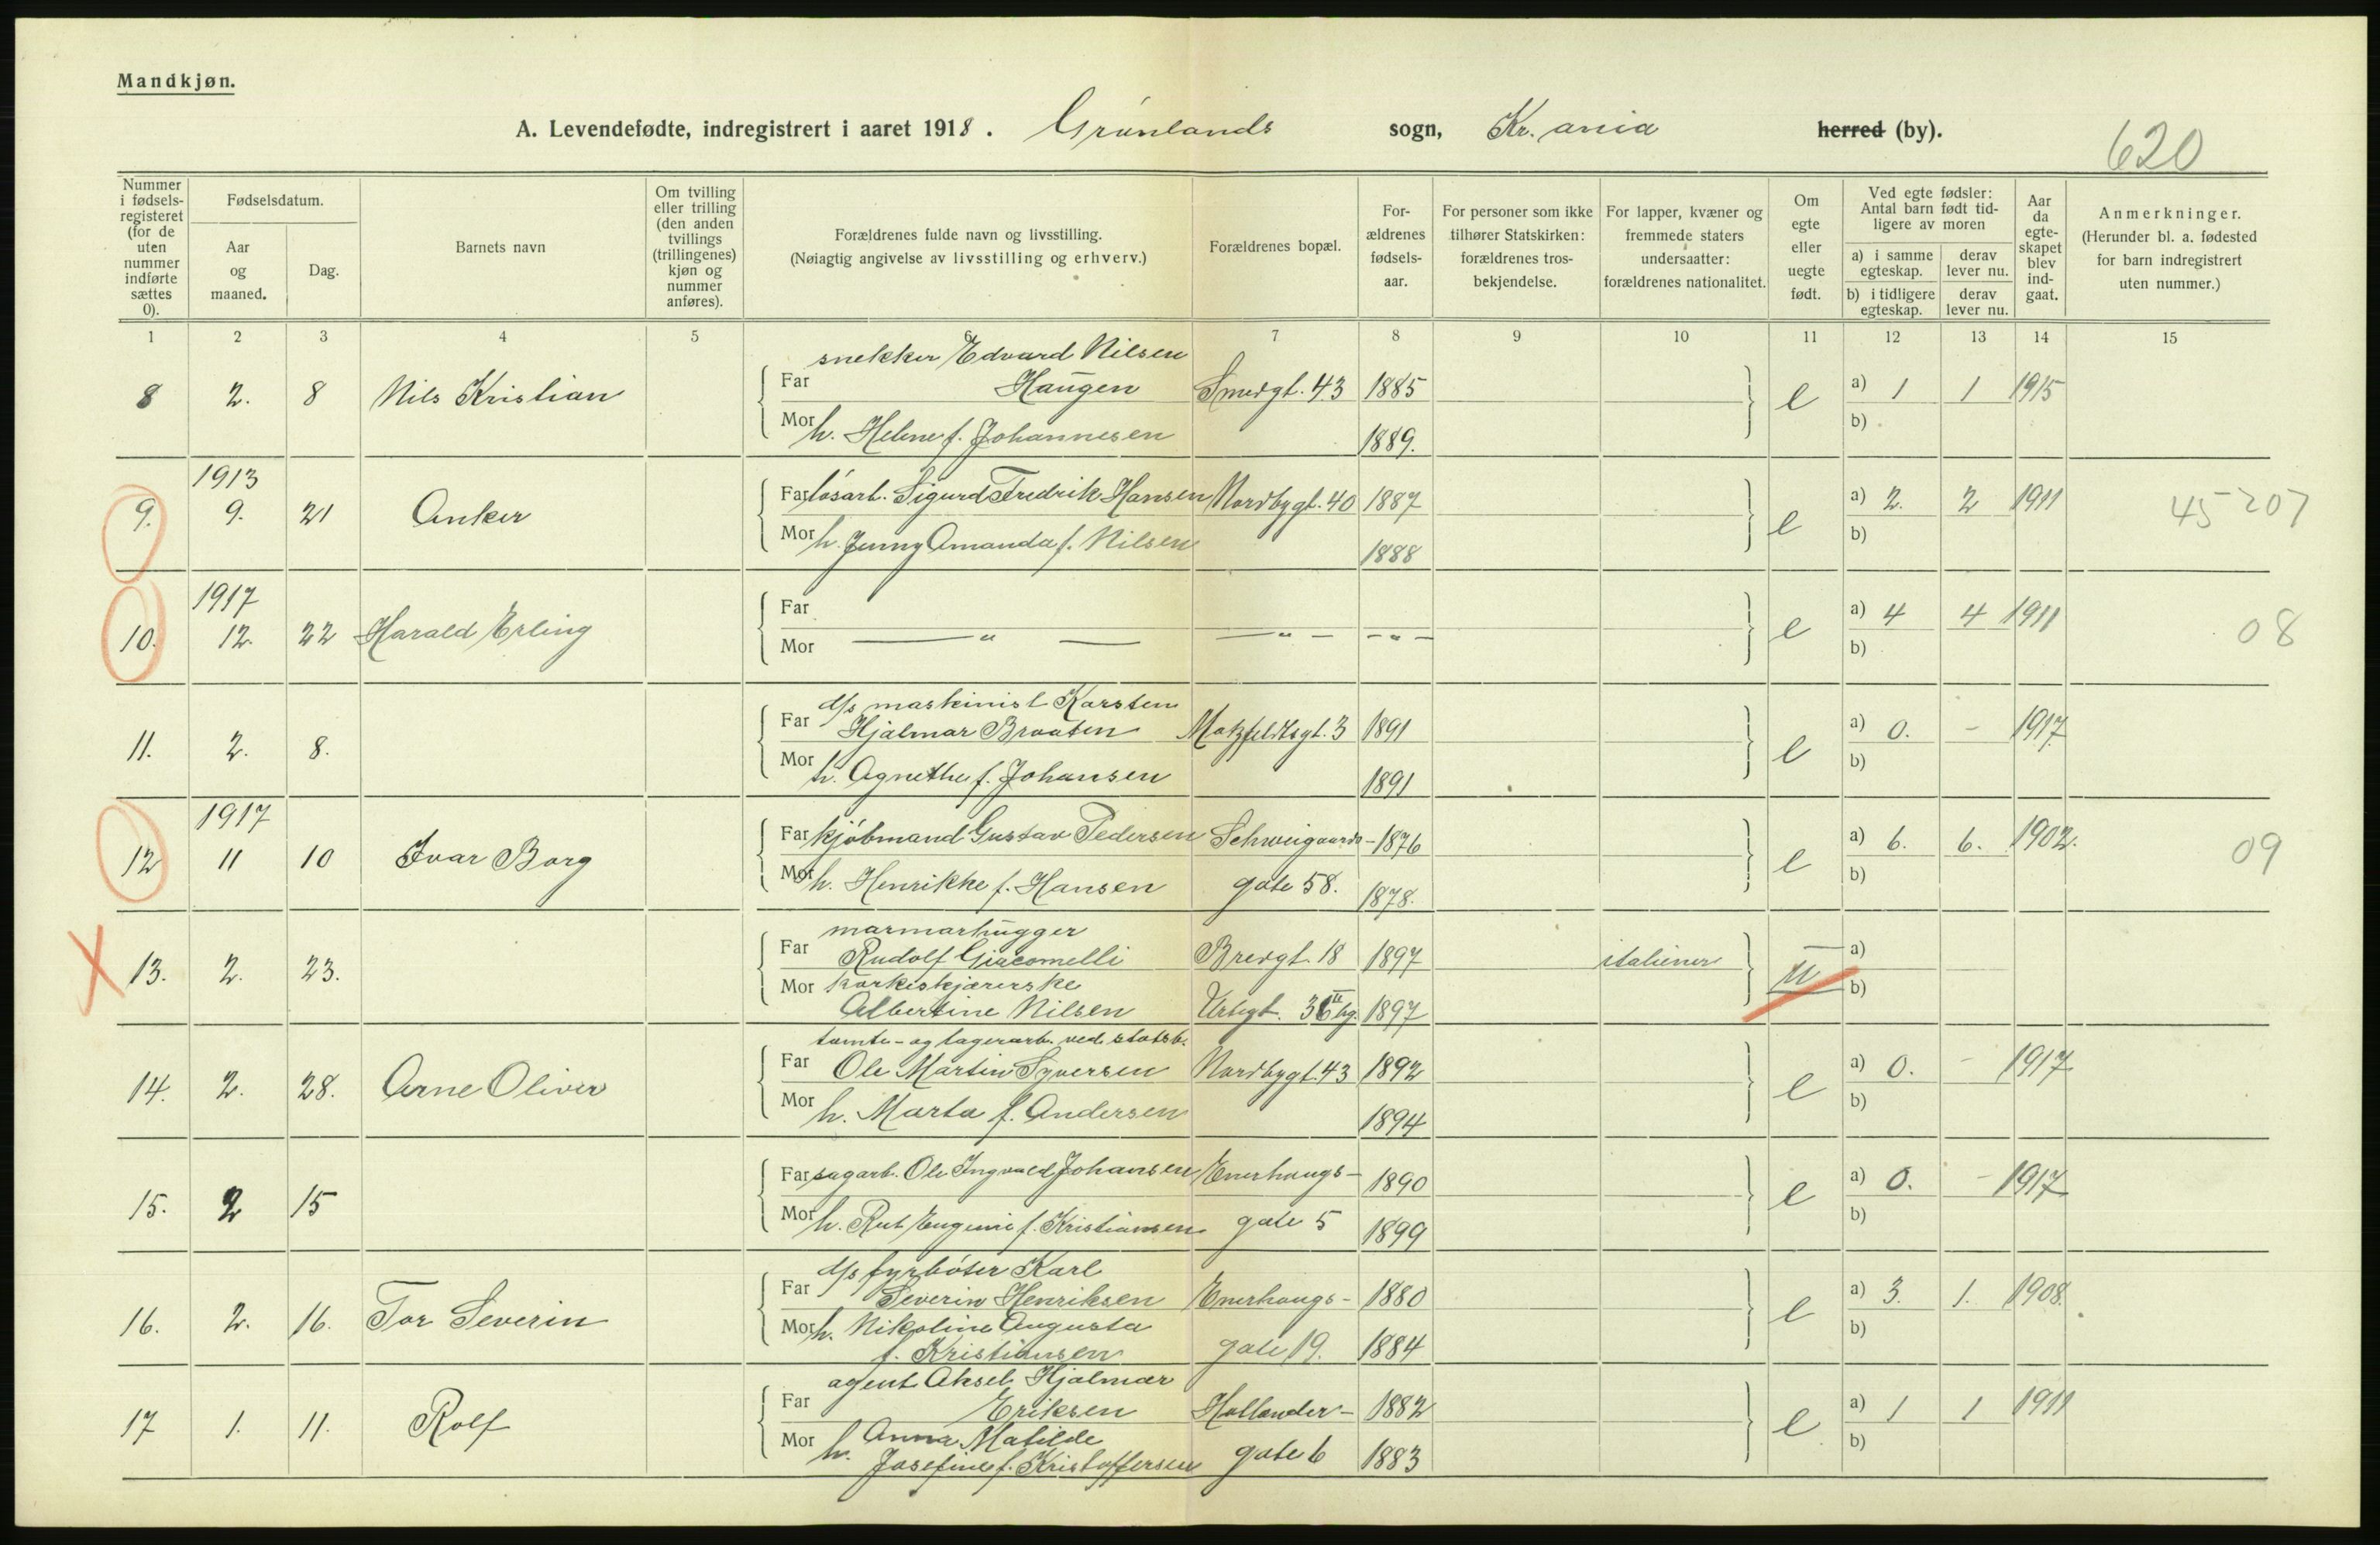 Mandkjøn.
A. Levendefødte, indregistrert i aaret 1918. Grønlands sogn, Kr.ania herred (by).
620
Nummer i fødsels-registeret (for de uten nummer indførte sættes 0).
Fødselsdatum.
Aar og maaned.
Dag.
Barnets navn
Om tvilling eller trilling (den anden tvillings (trillingenes) kjøn og nummer anføres).
Forældrenes fulde navn og livsstilling.
(Nøiagtig angivelse av livsstilling og erhverv.)
Forældrenes bopæl.
For-ældrenes fødsels-aar.
For personer som ikke tilhører Statskirken: forældrenes tros-bekjendelse.
For lapper, kvæner og fremmede staters undersaatter: forældrenes nationalitet.
Om egte eller uegte født.
Ved egte fødsler: Antal barn født tid-ligere av moren
a) i samme egteskap. derav lever nu.
b) i tidligere egteskap. derav lever nu.
Aar da egte-skapet blev ind-gaat.
Anmerkninger.
(Herunder bl. a. fødested for barn indregistrert uten nummer.)
1 2 3 4 5 6 7 8 9 10 11 12 13 14 15
snekker Edvard Nilsen
8 2. 8 Nils Kristian Far Haugen Smedgt. 43 1885 e a) 1 1 1915
Mor h. Helene f. Johannesen 1889. b)
1913
9. 9. 21 Anker Far løsarb. Sigurd Fredrik Hansen Nordbygt. 40 1887 e a) 2. 2 1911 45207
Mor h. Jenny Amanda f. Nilsen 1888 b)
1917
10. 12. 22 Harald Erling Far e a) 4 4 1911 08
Mor — " — — " — — " — b)
d/s maskinist Karsten
11. 2. 8. Far Hjalmar Braaten Motzfeldtsgt. 3 1891 e a) 0. - 1917
Mor h. Agnethe f. Johansen 1891 b)
1917
12 11 10 Ivar Borg Far kjøbmand Gustav Pedersen Schweigaards- 1876 e a) 6. 6. 1902. 09
Mor h. Henrikke f. Hansen gate 58. 1878. b)
marmorhugger
13. 2. 23. Far Rudolf Giacomelli Bredgt. 18 1897 italiener u a)
Mor korkeskjærerske b)
Albertine Nilsen Urtegt. 36 II bg. 1897
tomte- og lagerarb. ved statsb.
14. 2. 28. Arne Oliver Far Ole Martin Syversen Nordbygt. 43 1892 e a) 0. - 1917
Mor h. Marta f. Andersen 1894 b)
15. 2 15 Far sagarb. Ole Ingvald Johansen Enerhaugs- 1890 e a) 0. - 1917
Mor h. Rut Eugenie f. Kristiansen gate 5 1899 b)
d/s fyrbøter Karl
16. 2. 16. Tor Severin Far Severin Henriksen Enerhaugs- 1880 e a) 3. 1. 1908.
Mor h. Nikoline Augusta b)
f. Kristiansen gate 19. 1884
agent Aksel Hjalmar
17 1. 11. Rolf Far Eriksen Hollender- 1882 e a) 1 1 1911
Mor h. Anna Matilde b)
Josefine f. Kristoffersen gate 6 1883